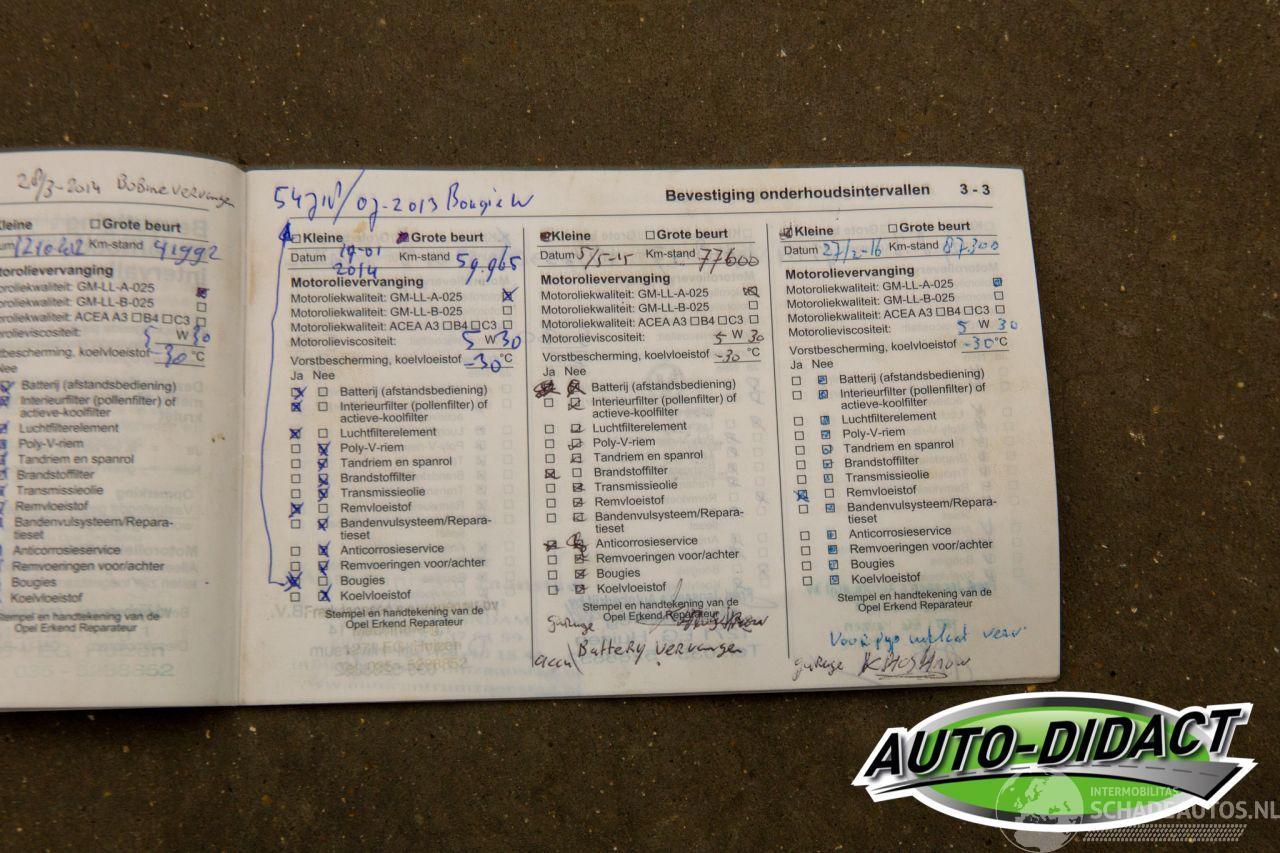 28/3-2014 Bobine vervangen
Kleine ☐ Grote beurt
Km-stand 41992
torolievervanging
toroliekwaliteit: GM-LL-A-025
toroliekwaliteit: GM-LL-B-025
toroliekwaliteit: ACEA A3 ☐B4 ☐C3
torolieviscositeit: 5 W 30
stbescherming, koelvloeistof -30 °C
Nee
Batterij (afstandsbediening)
Interieurfilter (pollenfilter) of
actieve-koolfilter
Luchtfilterelement
Poly-V-riem
Tandriem en spanrol
Brandstoffilter
Transmissieolie
Remvloeistof
Bandenvulsysteem/Repara-
tieset
Anticorrosieservice
Remvoeringen voor/achter
Bougies
Koelvloeistof
Stempel en handtekening van de
Opel Erkend Reparateur
07-2013 Bougie
Bevestiging onderhoudsintervallen 3 - 3
Kleine Grote beurt
Datum 14-01 Km-stand 59.965
2014
Motorolievervanging
Motoroliekwaliteit: GM-LL-A-025
Motoroliekwaliteit: GM-LL-B-025
Motoroliekwaliteit: ACEA A3 ☐B4 ☐C3
Motorolieviscositeit: 5 W 30
Vorstbescherming, koelvloeistof -30 °C
Ja Nee
Batterij (afstandsbediening)
Interieurfilter (pollenfilter) of
actieve-koolfilter
Luchtfilterelement
Poly-V-riem
Tandriem en spanrol
Brandstoffilter
Transmissieolie
Remvloeistof
Bandenvulsysteem/Repara-
tieset
Anticorrosieservice
Remvoeringen voor/achter
Bougies
Koelvloeistof
Stempel en handtekening van de
Opel Erkend Reparateur
Kleine ☐ Grote beurt
Datum 5/5-15 Km-stand 77600
Motorolievervanging
Motoroliekwaliteit: GM-LL-A-025
Motoroliekwaliteit: GM-LL-B-025
Motoroliekwaliteit: ACEA A3 ☐B4 ☐C3
Motorolieviscositeit: 5 W 30
Vorstbescherming, koelvloeistof -30 °C
Ja Nee
Batterij (afstandsbediening)
Interieurfilter (pollenfilter) of
actieve-koolfilter
Luchtfilterelement
Poly-V-riem
Tandriem en spanrol
Brandstoffilter
Transmissieolie
Remvloeistof
Bandenvulsysteem/Repara-
tieset
Anticorrosieservice
Remvoeringen voor/achter
Bougies
Koelvloeistof
Stempel en handtekening van de
Opel Erkend Reparateur
garage
accu Battery vervangen
Kleine ☐ Grote beurt
Datum 27/2-16 Km-stand 87.300
Motorolievervanging
Motoroliekwaliteit: GM-LL-A-025
Motoroliekwaliteit: GM-LL-B-025
Motoroliekwaliteit: ACEA A3 ☐B4 ☐C3
Motorolieviscositeit: 5 W 30
Vorstbescherming, koelvloeistof -30 °C
Ja Nee
Batterij (afstandsbediening)
Interieurfilter (pollenfilter) of
actieve-koolfilter
Luchtfilterelement
Poly-V-riem
Tandriem en spanrol
Brandstoffilter
Transmissieolie
Remvloeistof
Bandenvulsysteem/Repara-
tieset
Anticorrosieservice
Remvoeringen voor/achter
Bougies
Koelvloeistof
Stempel en handtekening van de
Opel Erkend Reparateur
garage
AUTO-DIDACT
INTERMOBILITAS
SCHADEAUTOS.NL